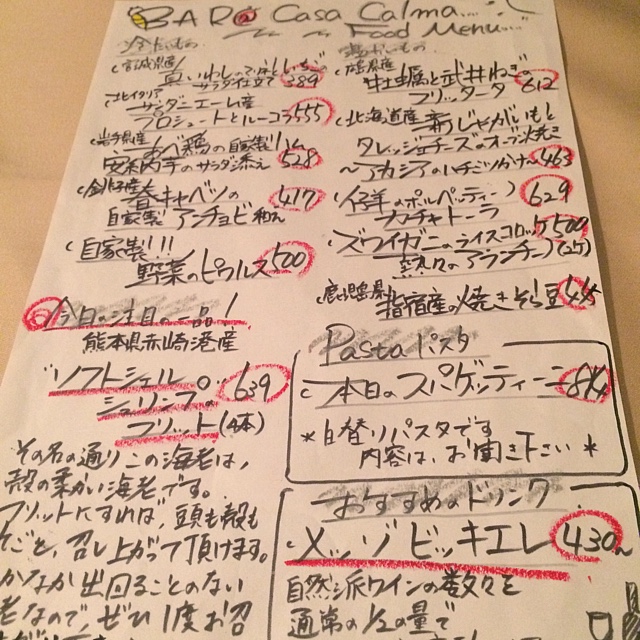 BAR Casa Calma...
Food Menu...
冷たいもの
宮城県産
真いわし
サラダ仕立て 389
北イタリア
サンダニエーレ産
プロシュートとルーコラ 555
岩手県産
鶏の自家製ハム
安納芋のサラダ添え 528
春キャベツの
自家製アンチョビ和え 417
自家製!!!
野菜のピクルス 500
今日の注目の一品!
熊本県赤崎港産
ソフトシェル
シュリンプの
フリット(4本) 639
その名の通りこの海老は、
殻の柔かい海老です。
フリットにすれば、頭も殻も
そごと、召し上がって頂けます。
かなか出回ることのない
老なので、ぜひ1度お召
温かいもの
牡蠣と
フリッタータ 612
北海道産 新じゃがいもと
タレッジョチーズのオーブン焼き
〜アカシアのハチミツがけ〜 463
仔羊のポルペッティーニ
カチャトーラ 629
ズワイガニのライスコロッケ 500
熱々のアランチーノ(2ケ)
鹿児島県
指宿産の焼きそら豆
Pasta パスタ
本日のスパゲッティーニ
*日替りパスタです
内容は、お聞き下さい*
おすすめのドリンク
メッゾ ビッキエレ 430〜
自然派ワインの数々を
通常の1/2の量で